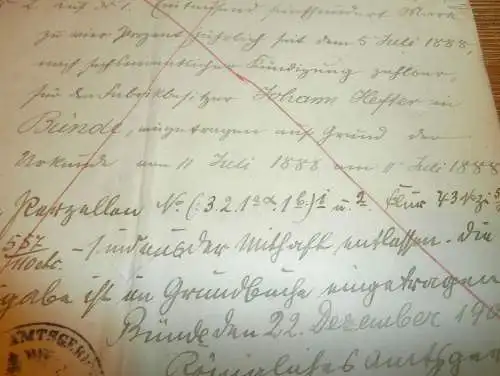 2 auf № 1. Eintausend fünfhundert Mark
zu vier Prozent jährlich seit dem 5 Juli 1888,
nach sechsmonatlicher Kündigung zahlbar,
für den Fabrikbesitzer Johann Hefter in
Bünde, eingetragen auf Grund der
Urkunde vom 11 Juli 1888 am 11 Juli 1888
Parzellen No. 
sind aus der Mithaft entlassen. Die
gabe ist im Grundbuche eingetragen
Bünde den 22. Dezember 190
Königliches Amtsger
AMTSGERI